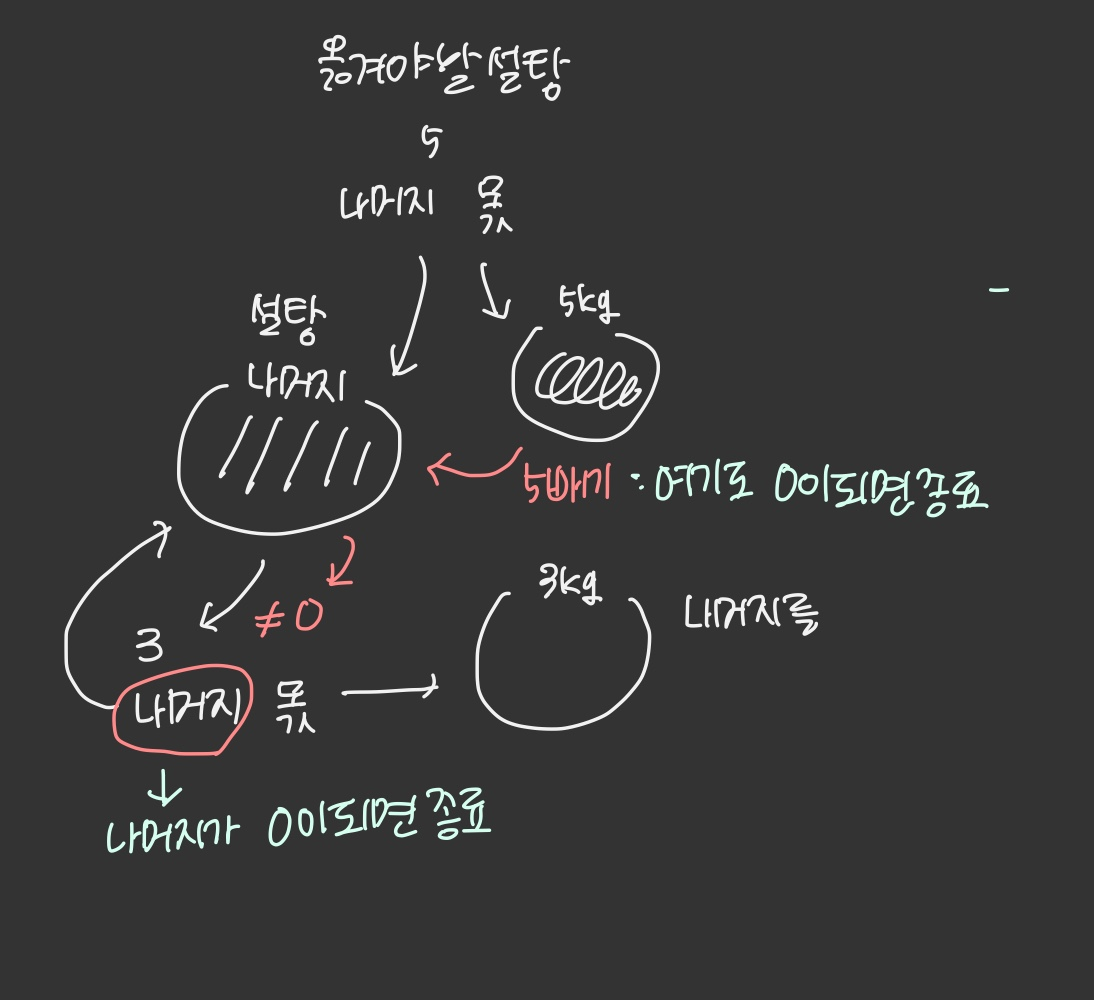 옮겨야할 설탕
5
나머지 몫
5kg
설탕
나머지
5바기 : 여기도 0이되면 종료
3kg
나머지를
≠ 0
3
나머지 몫
나머지가 0이되면 종료